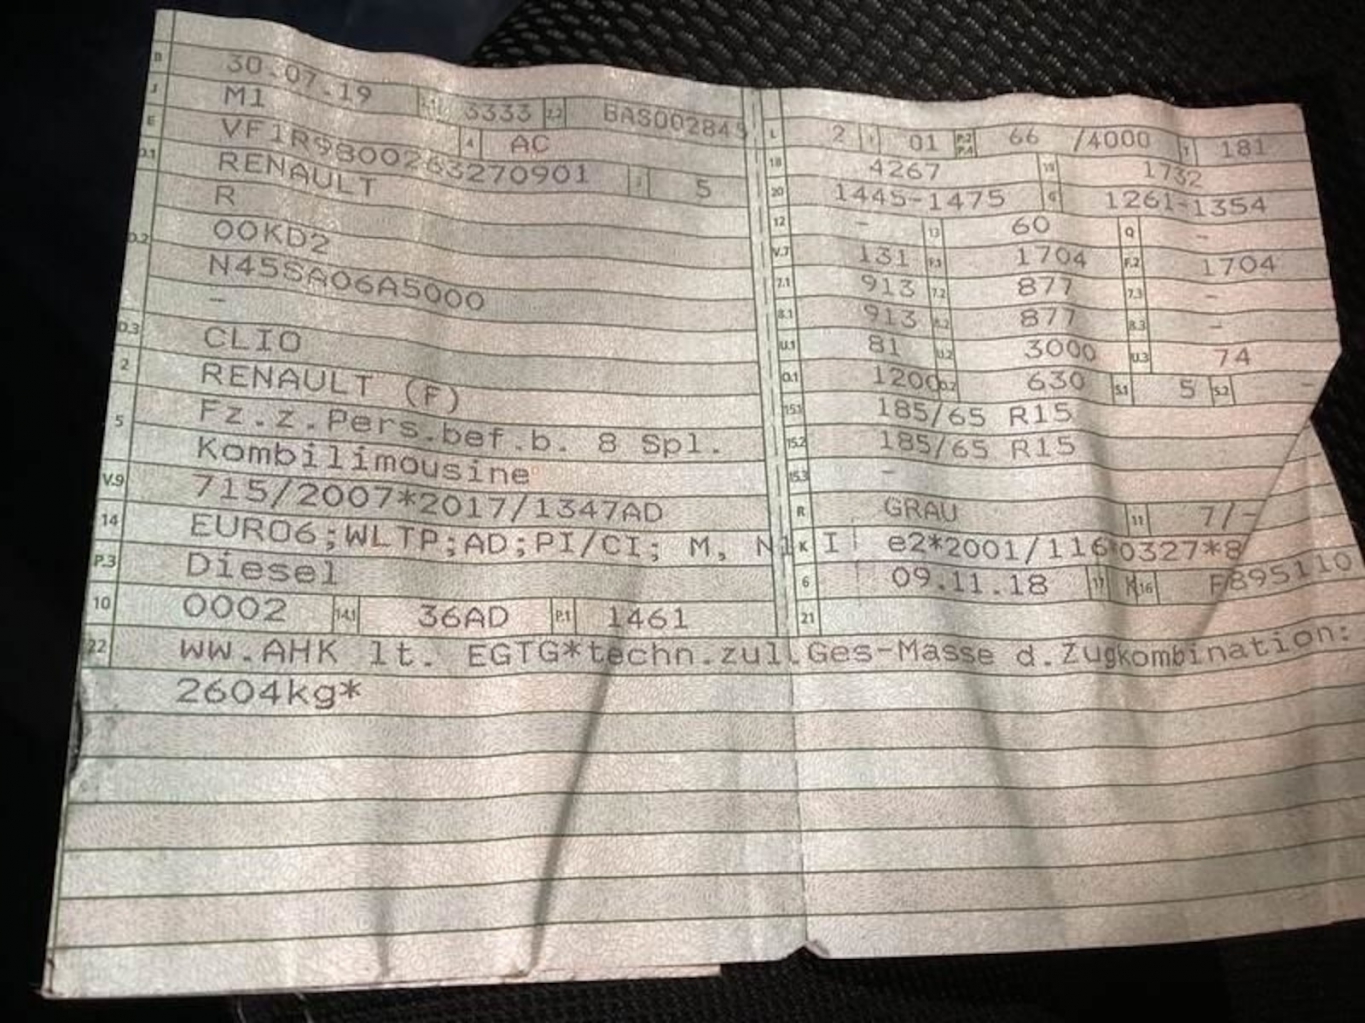 B 30.07.19 2.1 3333 2.2 BAS002849
J M1 4 AC
E VF1R9800263270901 3 5
D.1 RENAULT
R
D.2 00KD2
N45SA06A5000
-
D.3 CLIO
2 RENAULT (F)
5 Fz.z.Pers.bef.b. 8 Spl.
Kombilimousine
V.9 715/2007*2017/1347AD
14 EURO6;WLTP;AD;PI/CI; M, N1 I
P.3 Diesel
10 0002 14.1 36AD P.1 1461
22 WW.AHK lt. EGTG*techn.zul.Ges-Masse d.Zugkombination:
2604kg*
L 2 9 01 P.2 P.4 66 /4000 T 181
18 4267 19 1732
20 1445-1475 G 1261-1354
12 - 13 60 Q -
V.7 131 F.1 1704 F.2 1704
7.1 913 7.2 877 7.3 -
8.1 913 8.2 877 8.3 -
U.1 81 U.2 3000 U.3 74
O.1 1200 O.2 630 S.1 5 S.2 -
15.1 185/65 R15
15.2 185/65 R15
15.3 -
R GRAU 11 7/-
K e2*2001/116*0327*8
6 09.11.18 17 K 16 F895110
21